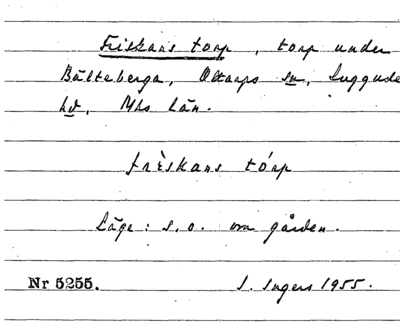 Friskans torp, torp under
Bälteberga, Ottarps sn, Luggude
hd, Mhs län.
frìskans tórp
Läge: s.o. om gården.
Nr 5255. I. Ingers 1955.